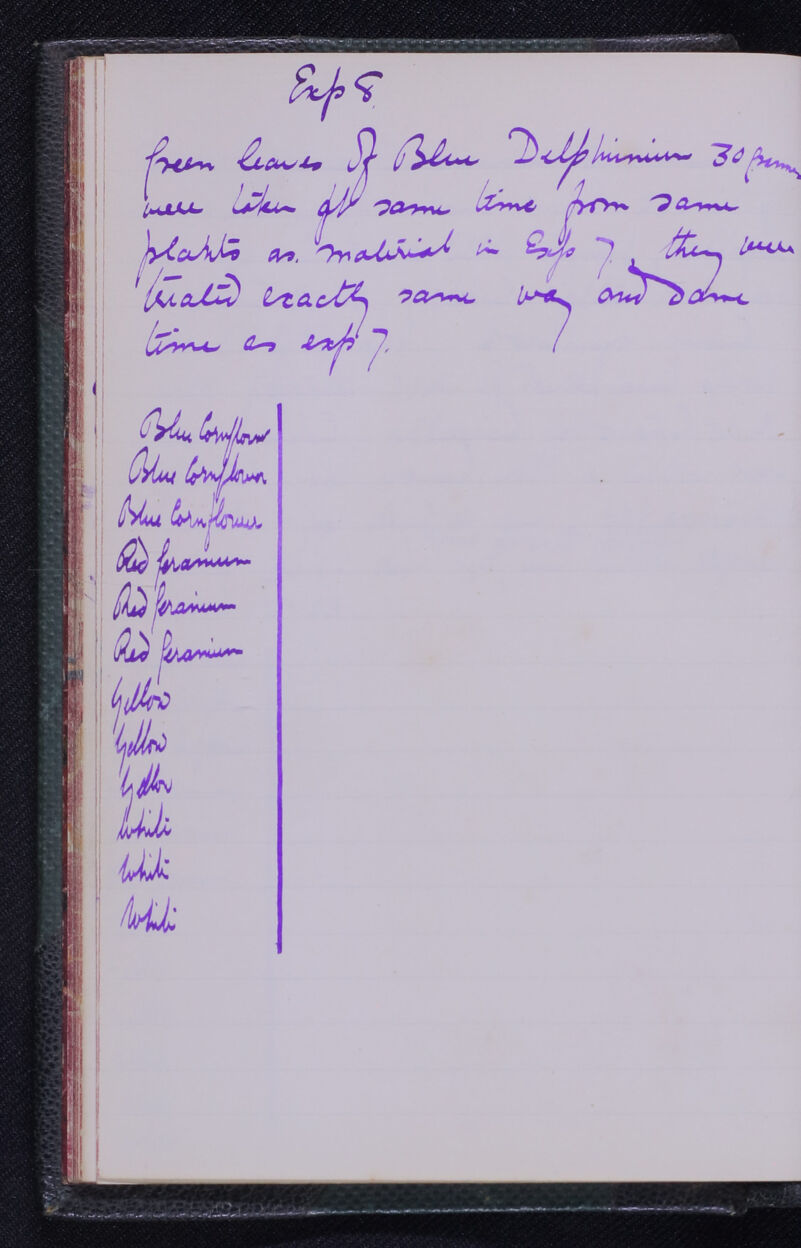 Exp 8.
Green leaves of Blue Delphinium 30 grammes
were taken at same time from same
plants as material in Exp 7, they were
treated exactly same way and same
time as exp 7.
Blue Cornflower
Blue Cornflower
Blue Cornflower
Red Geranium
Red Geranium
Red Geranium
Yellow
Yellow
Yellow
White
White
White